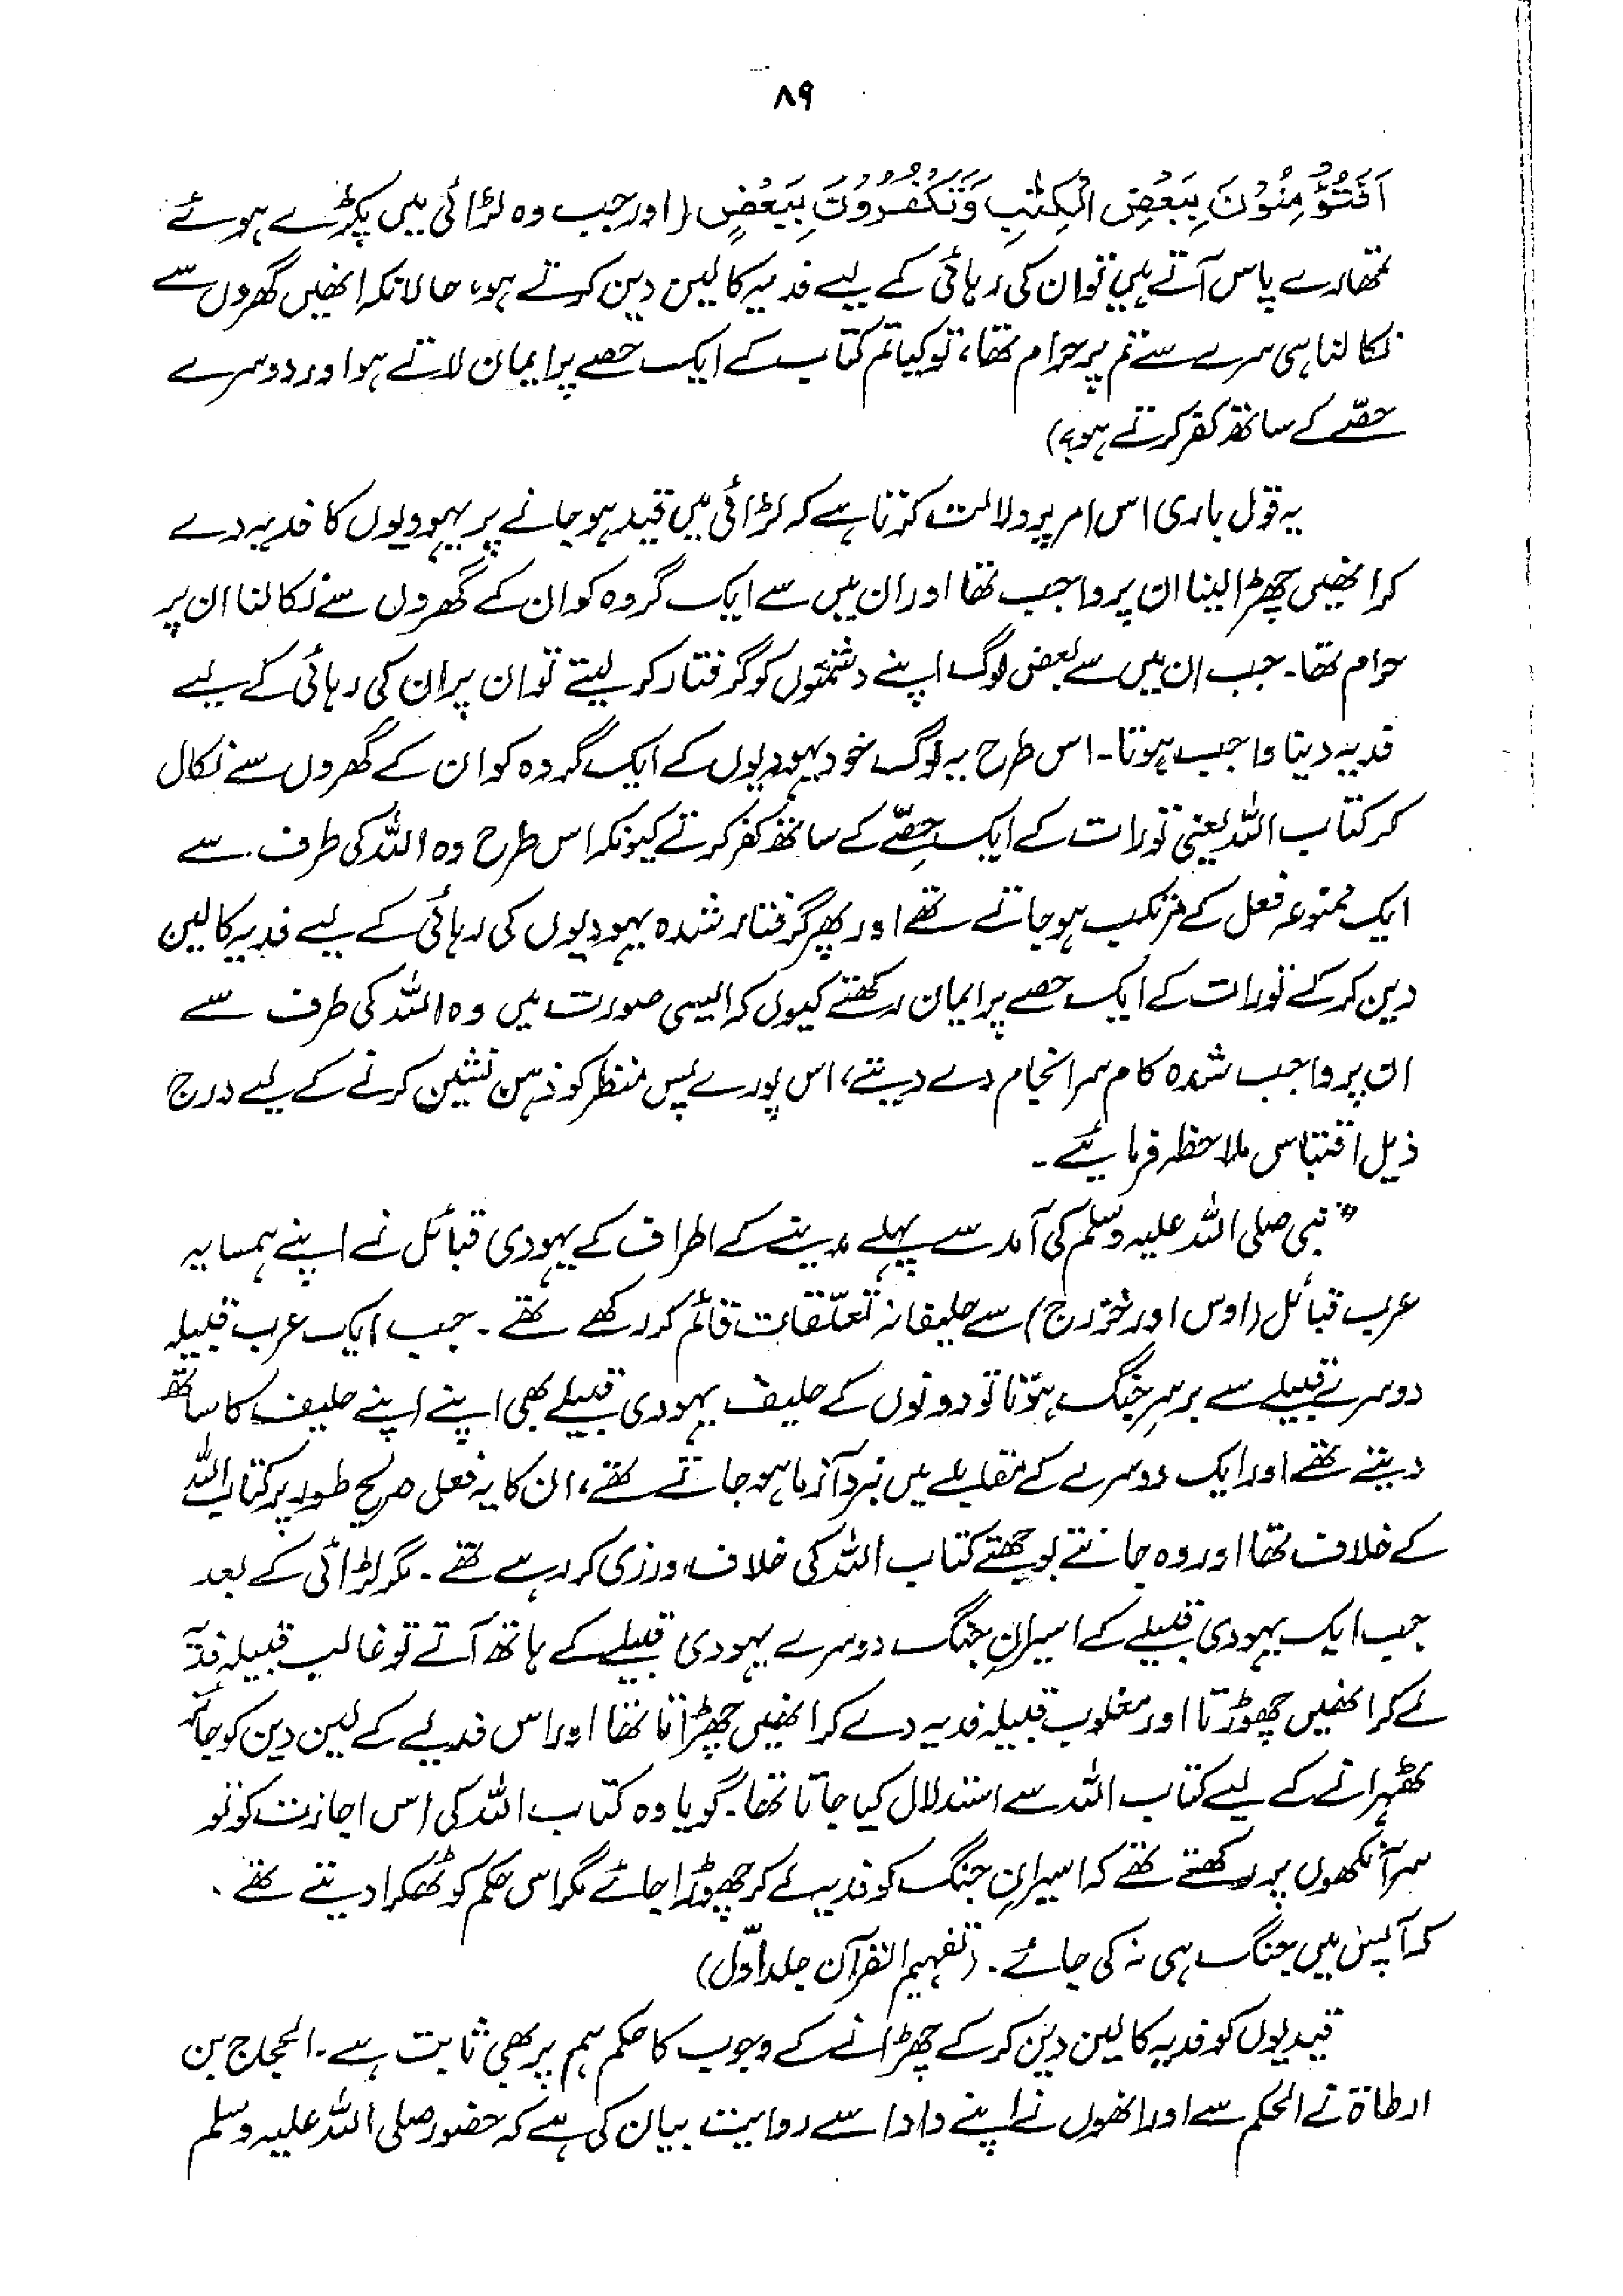 ۸۹
اَفَتُؤْمِنُوْنَ بِبَعْضِ الْكِتٰبِ وَتَكْفُرُوْنَ بِبَعْضٍ (اور جب وہ لڑائی میں پکڑے ہوئے
تمھارے پاس آتے ہیں تو ان کی رہائی کے لیے فدیہ کا لین دین کرتے ہو، حالانکہ انھیں گھروں سے
نکالنا ہی سرے سے تم پر حرام تھا، تو کیا تم کتاب کے ایک حصے پر ایمان لاتے ہو اور دوسرے
حصّے کے ساتھ کفر کرتے ہو؟)
یہ قول باری اس امر پر دلالت کرتا ہے کہ لڑائی میں قید ہو جانے پر یہودیوں کا فدیہ دے
کر انھیں چھڑا لینا ان پر واجب تھا اور ان میں سے ایک گروہ کو ان کے گھروں سے نکالنا ان پر
حرام تھا۔ جب ان میں سے بعض لوگ اپنے دشمنوں کو گرفتار کر لیتے تو ان پر ان کی رہائی کے لیے
فدیہ دینا واجب ہوتا۔ اس طرح یہ لوگ خود یہودیوں کے ایک گروہ کو ان کے گھروں سے نکال
کر کتاب اللہ یعنی تورات کے ایک حِصّے کے ساتھ کفر کرتے کیونکہ اس طرح وہ اللہ کی طرف سے
ایک ممنوعہ فعل کے مرتکب ہو جاتے تھے اور پھر گرفتار شدہ یہودیوں کی رہائی کے لیے فدیہ کا لین
دین کر کے تورات کے ایک حصے پر ایمان رکھتے کیوں کہ ایسی صورت میں وہ اللہ کی طرف سے
ان پر واجب شدہ کام سر انجام دے دیتے، اس پورے پس منظر کو ذہن نشین کرنے کے لیے درج
ذیل اقتباس ملاحظہ فرمایئے۔
" نبی صلی اللہ علیہ وسلم کی آمد سے پہلے مدینے کے اطراف کے یہودی قبائل نے اپنے ہمسایہ
عرب قبائل (اوس اور خزرج) سے حلیفانہ تعلّقات قائم کر رکھے تھے۔ جب ایک عرب قبیلہ
دوسرے قبیلے سے برسرِ جنگ ہوتا تو دونوں کے حلیف یہودی قبیلے بھی اپنے اپنے حلیف کا ساتھ
دیتے تھے اور ایک دوسرے کے مقابلے میں نبرد آزما ہو جاتے تھے، ان کا یہ فعل صریح طور پر کتاب اللہ
کے خلاف تھا اور وہ جانتے بوجھتے کتاب اللہ کی خلاف ورزی کر رہے تھے۔ مگر لڑائی کے بعد
جب ایک یہودی قبیلے کے اسیرانِ جنگ دوسرے یہودی قبیلے کے ہاتھ آتے تو غالب قبیلہ فدیہ
لے کر انھیں چھوڑتا اور مغلوب قبیلہ فدیہ دے کر انھیں چھڑاتا تھا اور اس فدیے کے لین دین کو جائز
ٹھہرانے کے لیے کتاب اللہ سے استدلال کیا جاتا تھا۔ گویا وہ کتاب اللہ کی اس اجازت کو تو
سر آنکھوں پر رکھتے تھے کہ اسیرانِ جنگ کو فدیہ لے کر چھوڑا جائے مگر اس حکم کو ٹھکرا دیتے تھے۔
کہ آپس میں جنگ ہی نہ کی جائے۔ (تفہیم القرآن جلد اوّل)
قیدیوں کو فدیہ کا لین دین کر کے چھڑانے کے وجوب کا حکم ہم پر بھی ثابت ہے۔ الحجاج بن
ارطاۃ نے الحکم سے اور انھوں نے اپنے دادا سے روایت بیان کی ہے کہ حضور صلی اللہ علیہ وسلم